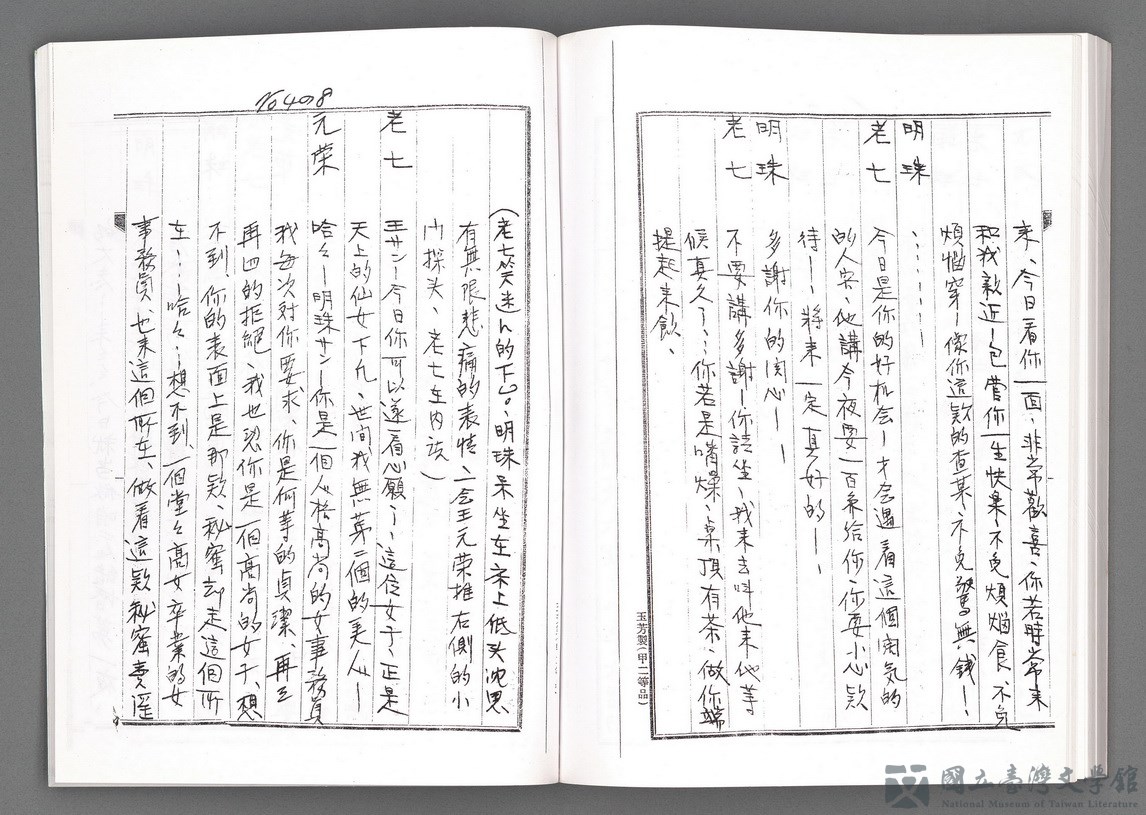 来、今日看你一面、非常歡喜、你若時常来
和我親近－包管你一生快樂、不免煩惱食、不免
煩惱穿－像你這款的查某、不免驚無錢－、
明珠 ：：：：：－
老七 今日是你的好机会－才会遇着這個闊気的
的人客、他講今夜要一百条給你、你要小心款
待－－将来一定真好的－－
明珠 多謝你的関心－－
老七 不要講多謝－你請坐、我来去叫他来、他等
候真久了：：你若是嘴燥、桌頂有茶、做你端
提起来飲、
玉芳製(甲二等品)
No 408
(老七笑迷ん的下台、明珠呆坐在床上低头沈思
有無限悲痛的表情、一会王元荣推右側的小
门探头、老七在内話)
老七 王サン－今日你可以遂着心願、、這位女子、正是
天上的仙女下凡、世間我無第二個的美人－
元荣 哈々－明珠サン－你是一個人格高尚的女事務員
我每次対你要求、你是何等的貞潔、再三
再四的拒絕、我也認你是一個高尚的女子、想
不到、你的表面上是那款、秘蜜却走這個所
在：：哈々：：想不到、一個堂々高女卒業的女
事務員、也来這個所在、做着這款秘蜜賣淫
國立臺灣文學館
National Museum of Taiwan Literature